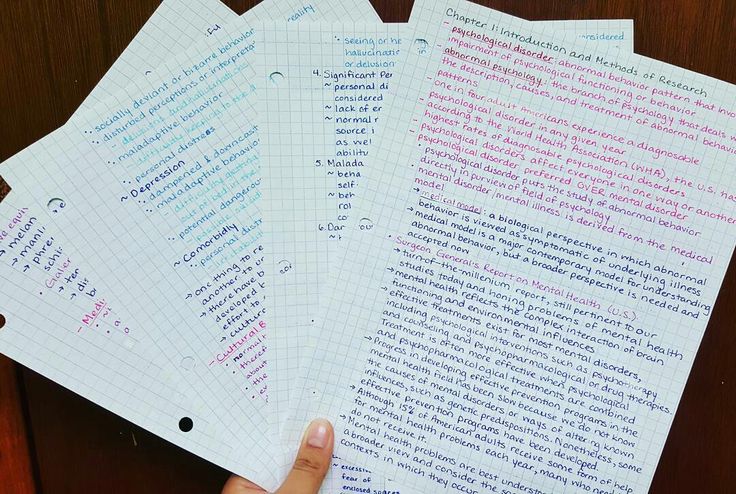 Chapter 1: Introduction and Methods of Research
- psychological disorder: abnormal behavior pattern that invol
impairment of psychological functioning or behavior
- abnormal psychology: the branch of psychology that deals w
the description, causes, and treatment of abnormal behavi
patterns
- one in four adult Americans experience a diagnosable
psychological disorder in any given year
- according to the World Health Association (WHA), the U.S. has
highest rates of diagnosable psychological disorders
- psychological disorders affect everyone in one way or anothe
- psychological disorder preferred OVER mental disorder
• psychological disorder puts the study of abnormal behavior
directly in purview of field of psychology
• mental disorder/mental illness is derived from the medical
model
→ medical model: a biological perspective in which abnormal
behavior is viewed as symptomatic of underlying illness
→ medical model is a major contemporary model for understanding
abnormal behavior, but a broader perspective is needed and
accepted now
• Surgeon General's Report on Mental Health (U.S.)
→ turn-of-the-millenium report, still pertinent to our
studies today and honing problems of mental health
→ mental health reflects the complex interaction of brain
functioning and environmental influences
→ effective treatments exist for most mental disorders,
including psychological interventions such as psychotherapy
and counseling and psychopharmacological or drug therapies.
Treatment is often more effective when psychological
and psychopharmacological treatments are combined
→ Progress in developing effective prevention programs in the
mental health field has been slow because we do not know
the causes of mental disorders or ways of altering known
influences, such as genetic predispositions. Nonetheless, some
effective prevention programs have been developed.
→ Although 15% of American adults receive some form of help
for mental health problems each year, many who need
do not receive it.
→ Mental health problems are best underst
a broader view and consider the so
contexts in which they occur
seeing or he
hallucinatic
or delusion
4. Significant Per
~ personal di
considered
~ lack of er
~ normal r
source i
as wel
abilit
5. Malada
~ beha
self-
~ beh
rol
co
6. Dar
considered
reality
socially deviant or bizarre behavior
disturbed perceptions or interpretat
maladaptive behavior
personal distress
~ Depression
dampened & downcast
maladaptive behavior
potential dangerous
personal distres
~ Comorbidly
→ one thing to re
another to u
→ there have b
developed b
effort to
→ culture
- Cultural B
• normal
therefo
about
the
e equi
→ melan
→ mani
→ phre
schi
• Galer
→ ter
→ dis
b
- Medi
excessiv
fear of
enclosed spaces